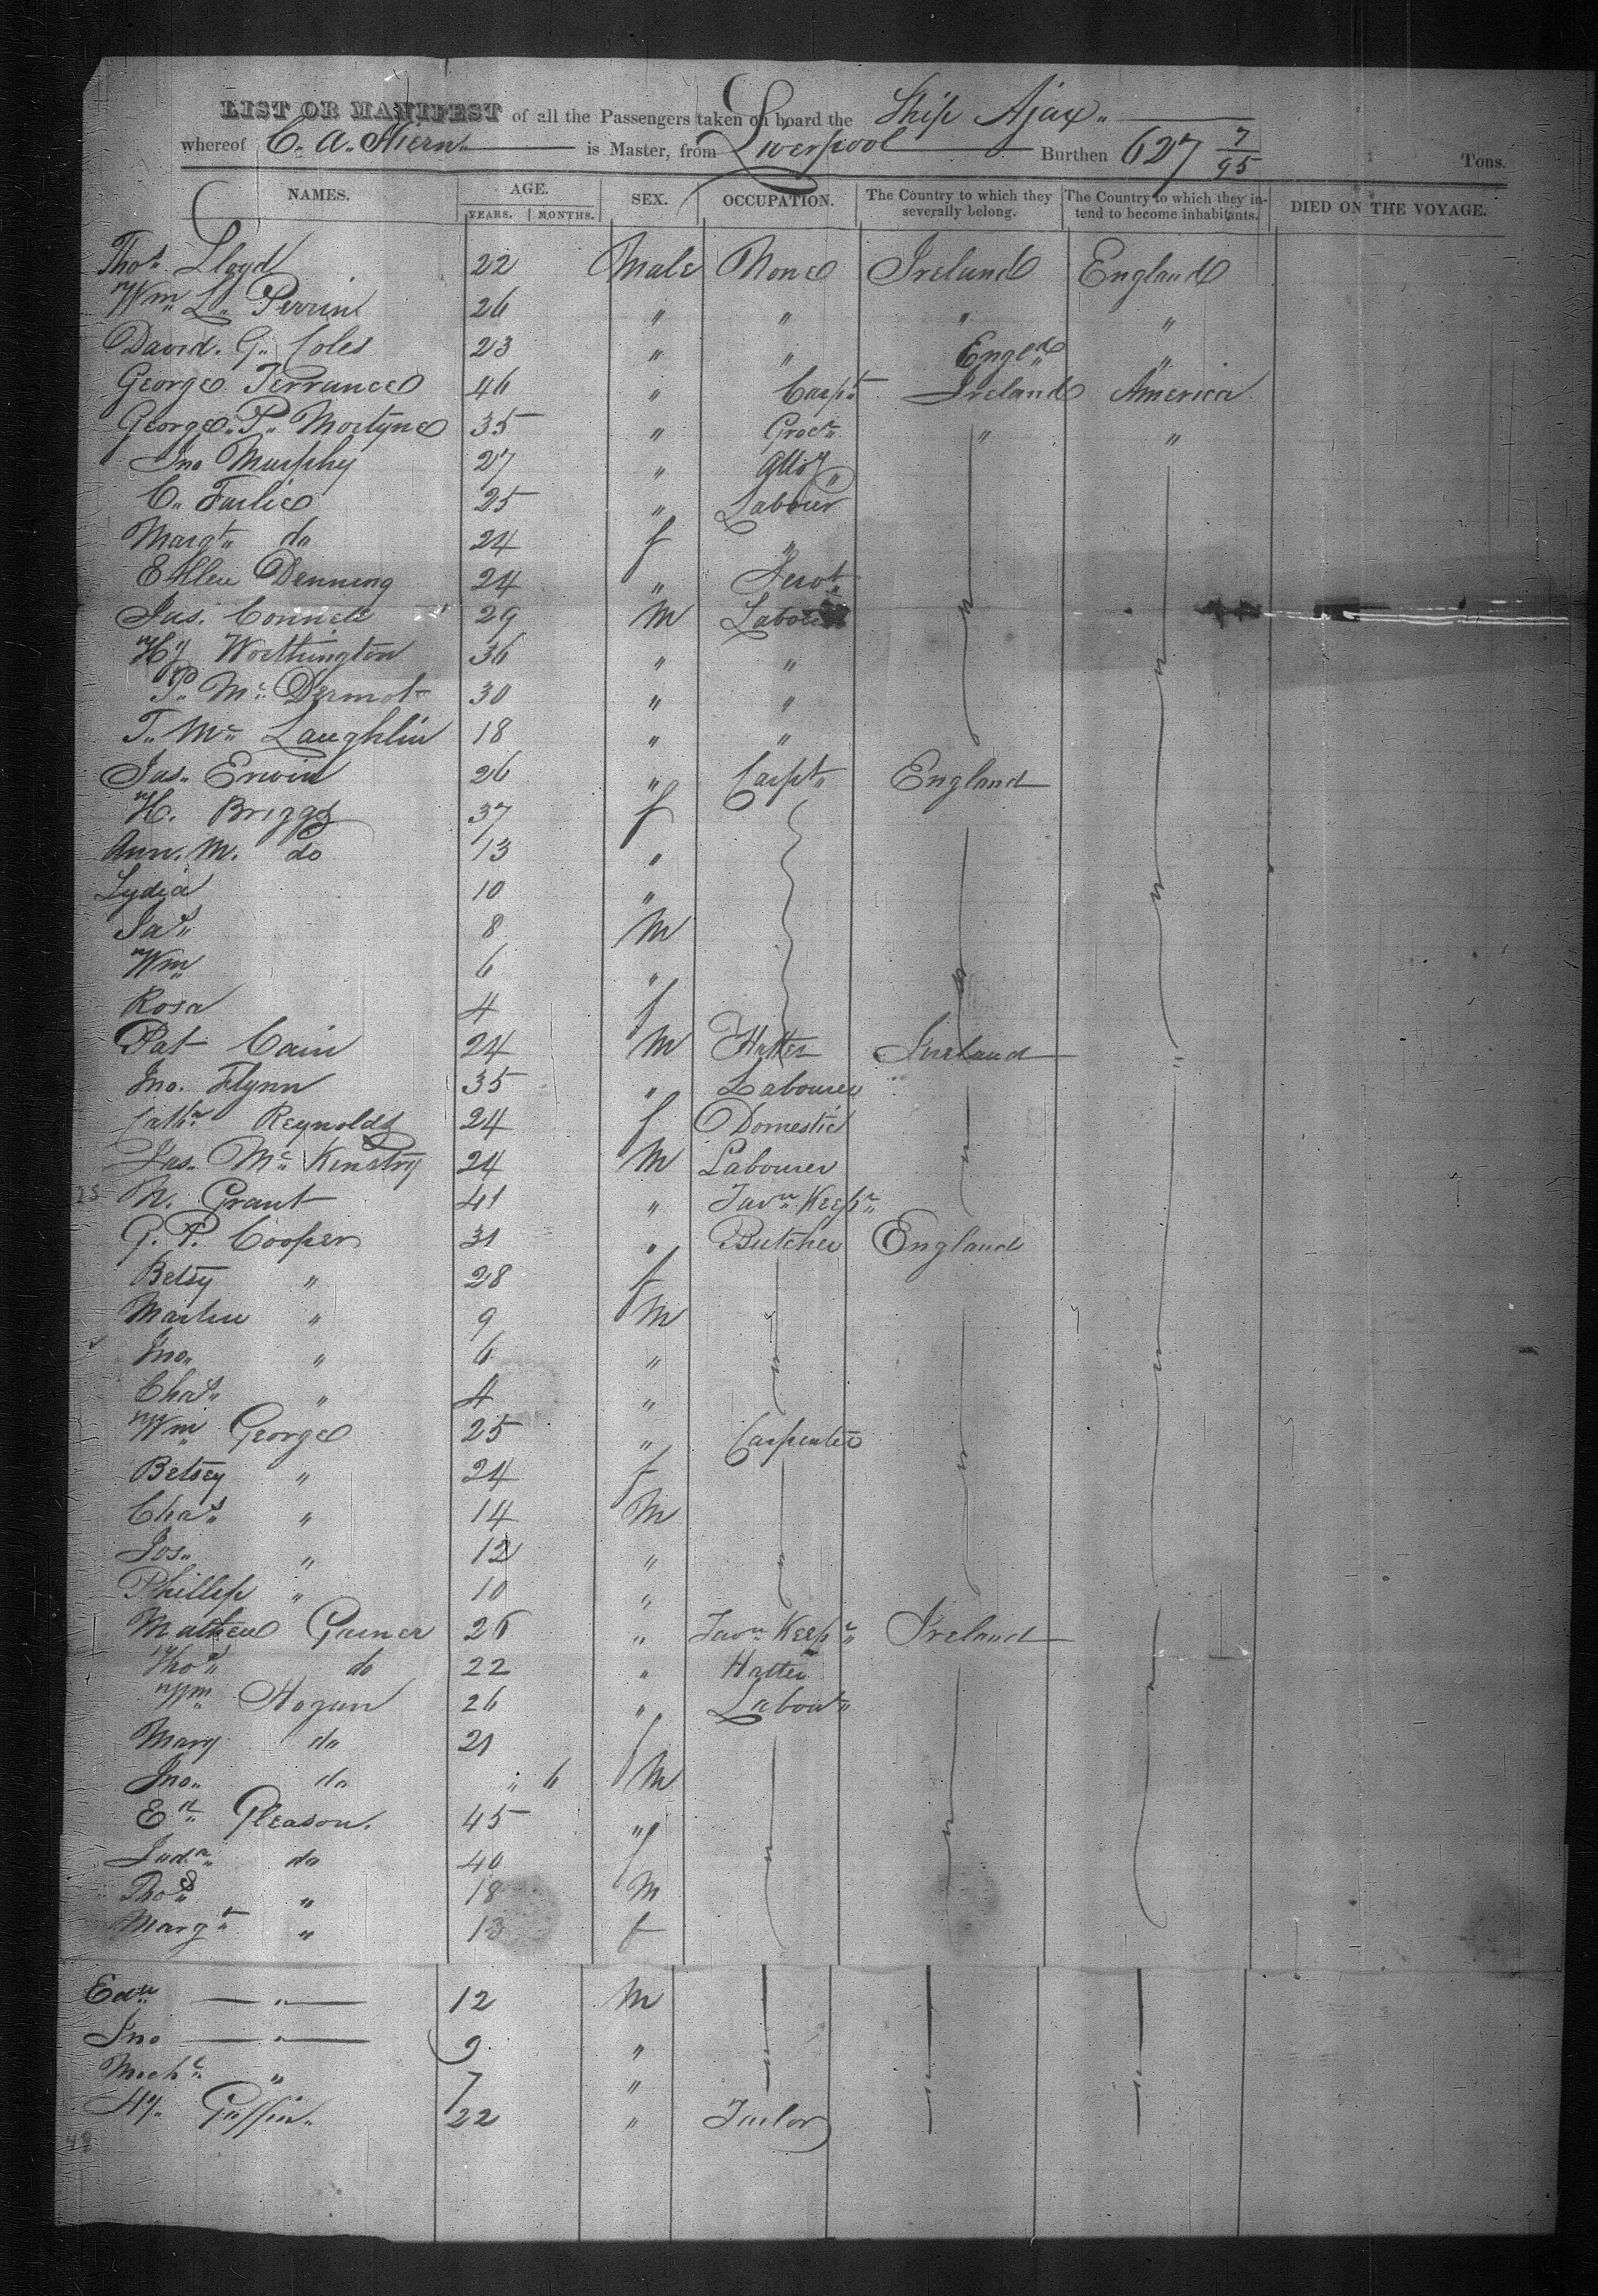 LIST OR MANIFEST of all the Passengers taken on board the Ship Ajax
whereof C. A. Hiern is Master, from Liverpool Burthen 627 7/95 Tons.
NAMES. AGE. SEX. OCCUPATION. The Country to which they severally belong. The Country to which they intend to become inhabitants. DIED ON THE VOYAGE.
YEARS. MONTHS.
Thos. Lloyd 22 Male None Ireland England
Wm L. Perrin 26 " " " "
David. G. Coles 23 " " Engld "
George Terrance 46 " Carpt Ireland America
George. P. Mostyne 35 " Grocr " "
Jno Murphy 27 " Atty
C. Farlie 25 " Labour
Margt do 24 f "
Ellen Denning 24 " Servt
Jas. Connell 29 M Labour
Hy Worthington 36 " "
P. Mc Dermot 30 " "
T. Mc Laughlin 18 " "
Jas. Erwin 26 " Carpt England
H. Briggs 37 f
Ann. M. do 13 "
Lydia 10 "
Jas 8 M
Wm 6 "
Rosa 4 f
Pat Cain 24 M Hatter Ireland "
Jno. Flynn 35 " Labourer
Cathr Reynolds 24 f Domestic
Jas. Mc Kinstry 24 M Labourer
N. Grant 41 " Tavn Keepr
G. P. Cooper 31 " Butcher England
Betsy " 28 f
Martin " 9 M
Jno. " 6 "
Chas " 4 "
Wm George 25 " Carpenter
Betsey " 24 f
Chas " 14 M
Jos. " 12 "
Phillip " 10 "
Mathew Garner 26 " Tavn Keepr Ireland
Thos do 22 " Hatter
Wm Hogan 26 " Labour
Mary do 21 f
Jno. do " 6 M
Ed Gleason. 45 "
Juda do 40 f
Thos " 18 M
Margt " 13 f
Edw " 12 M
Jno " 9 "
Michl " 7 "
Hy. Griffin 22 " Tailor